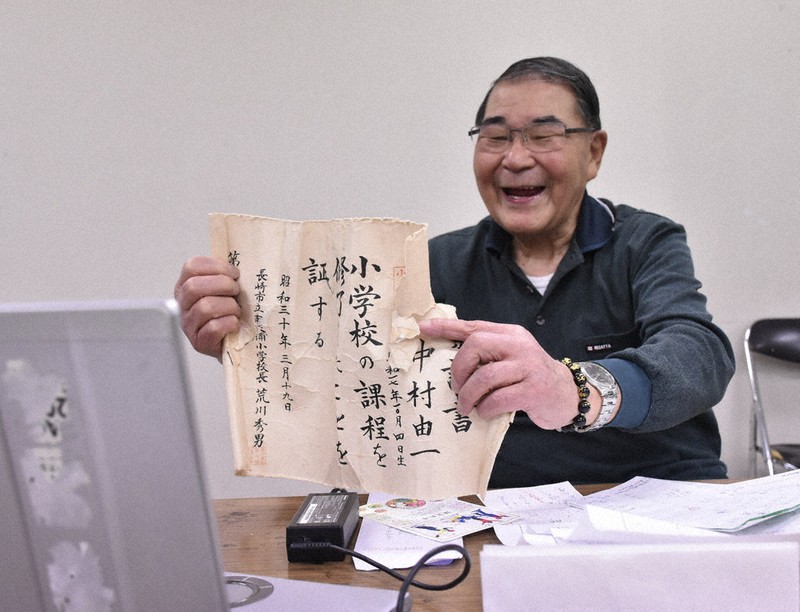 書
中村由一
和一七年一〇月四日生
小学校の課程を
修了 たことを
証する
昭和三十年三月十九日
長崎市立 浦小学校長 荒川秀男
第
REGATTA